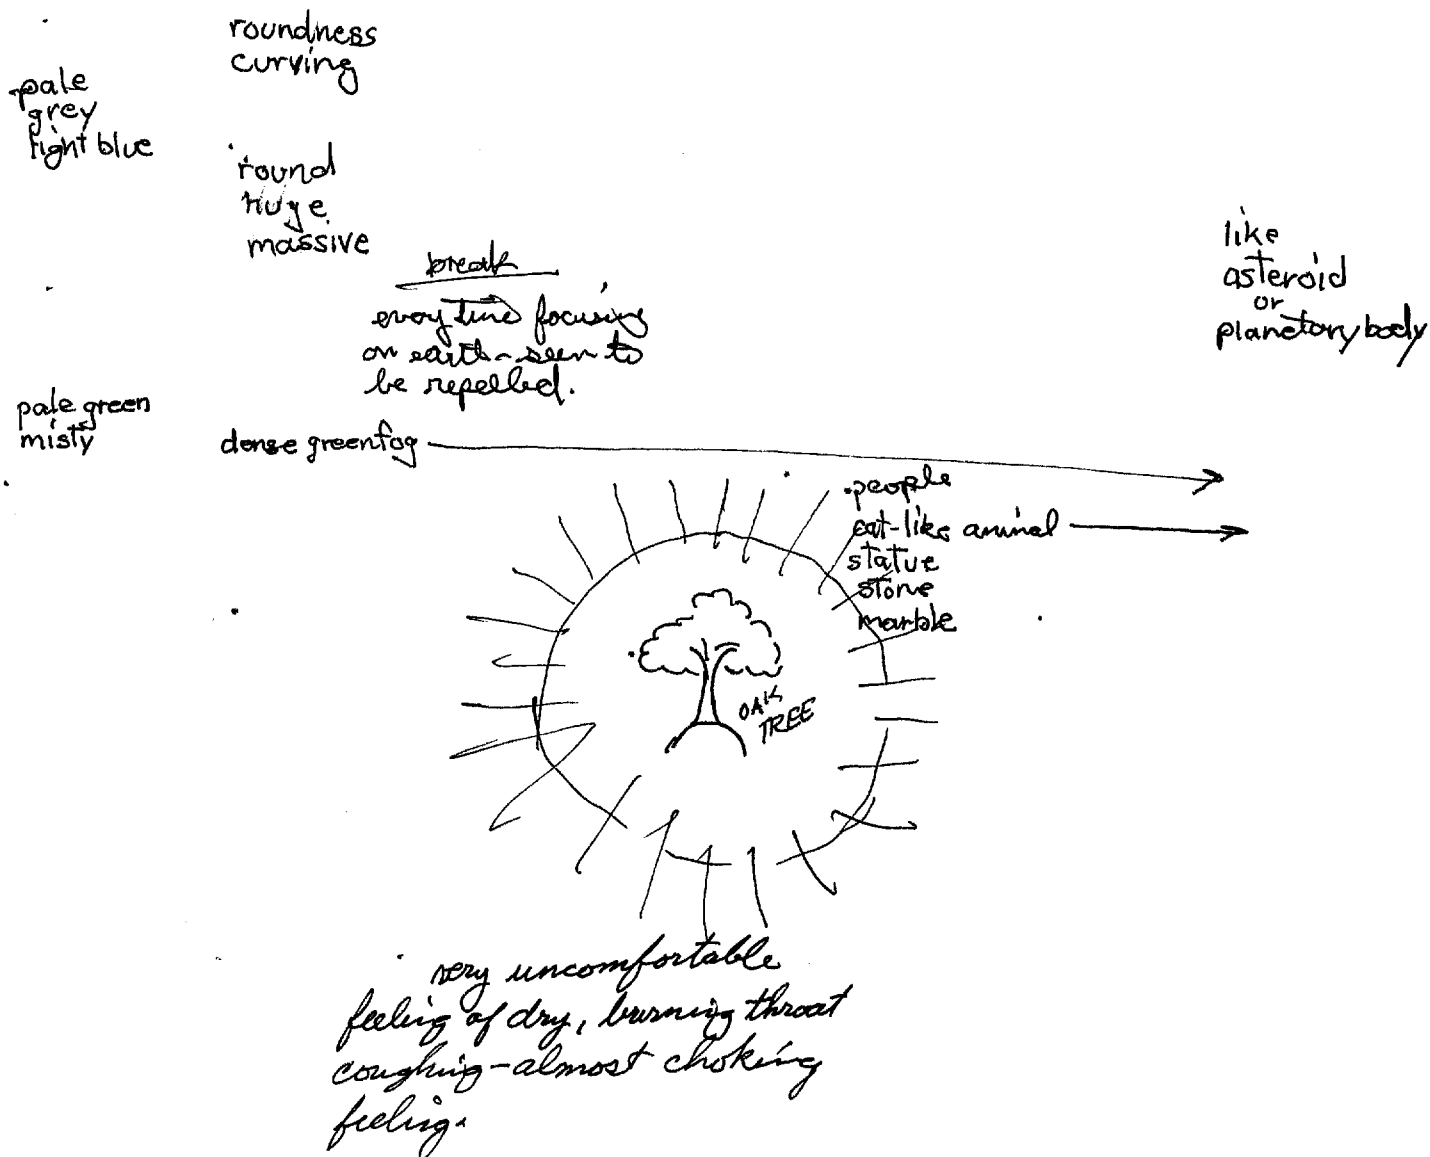 roundness
curving
pale
grey
light blue
round
huge
massive
break
every time focusing
on earth - seem to
be repelled.
like
asteroid
or
planetary body
pale green
misty
dense green fog
people
cat-like animal
statue
stone
marble
OAK
TREE
very uncomfortable
feeling of dry, burning throat
coughing - almost choking
feeling.